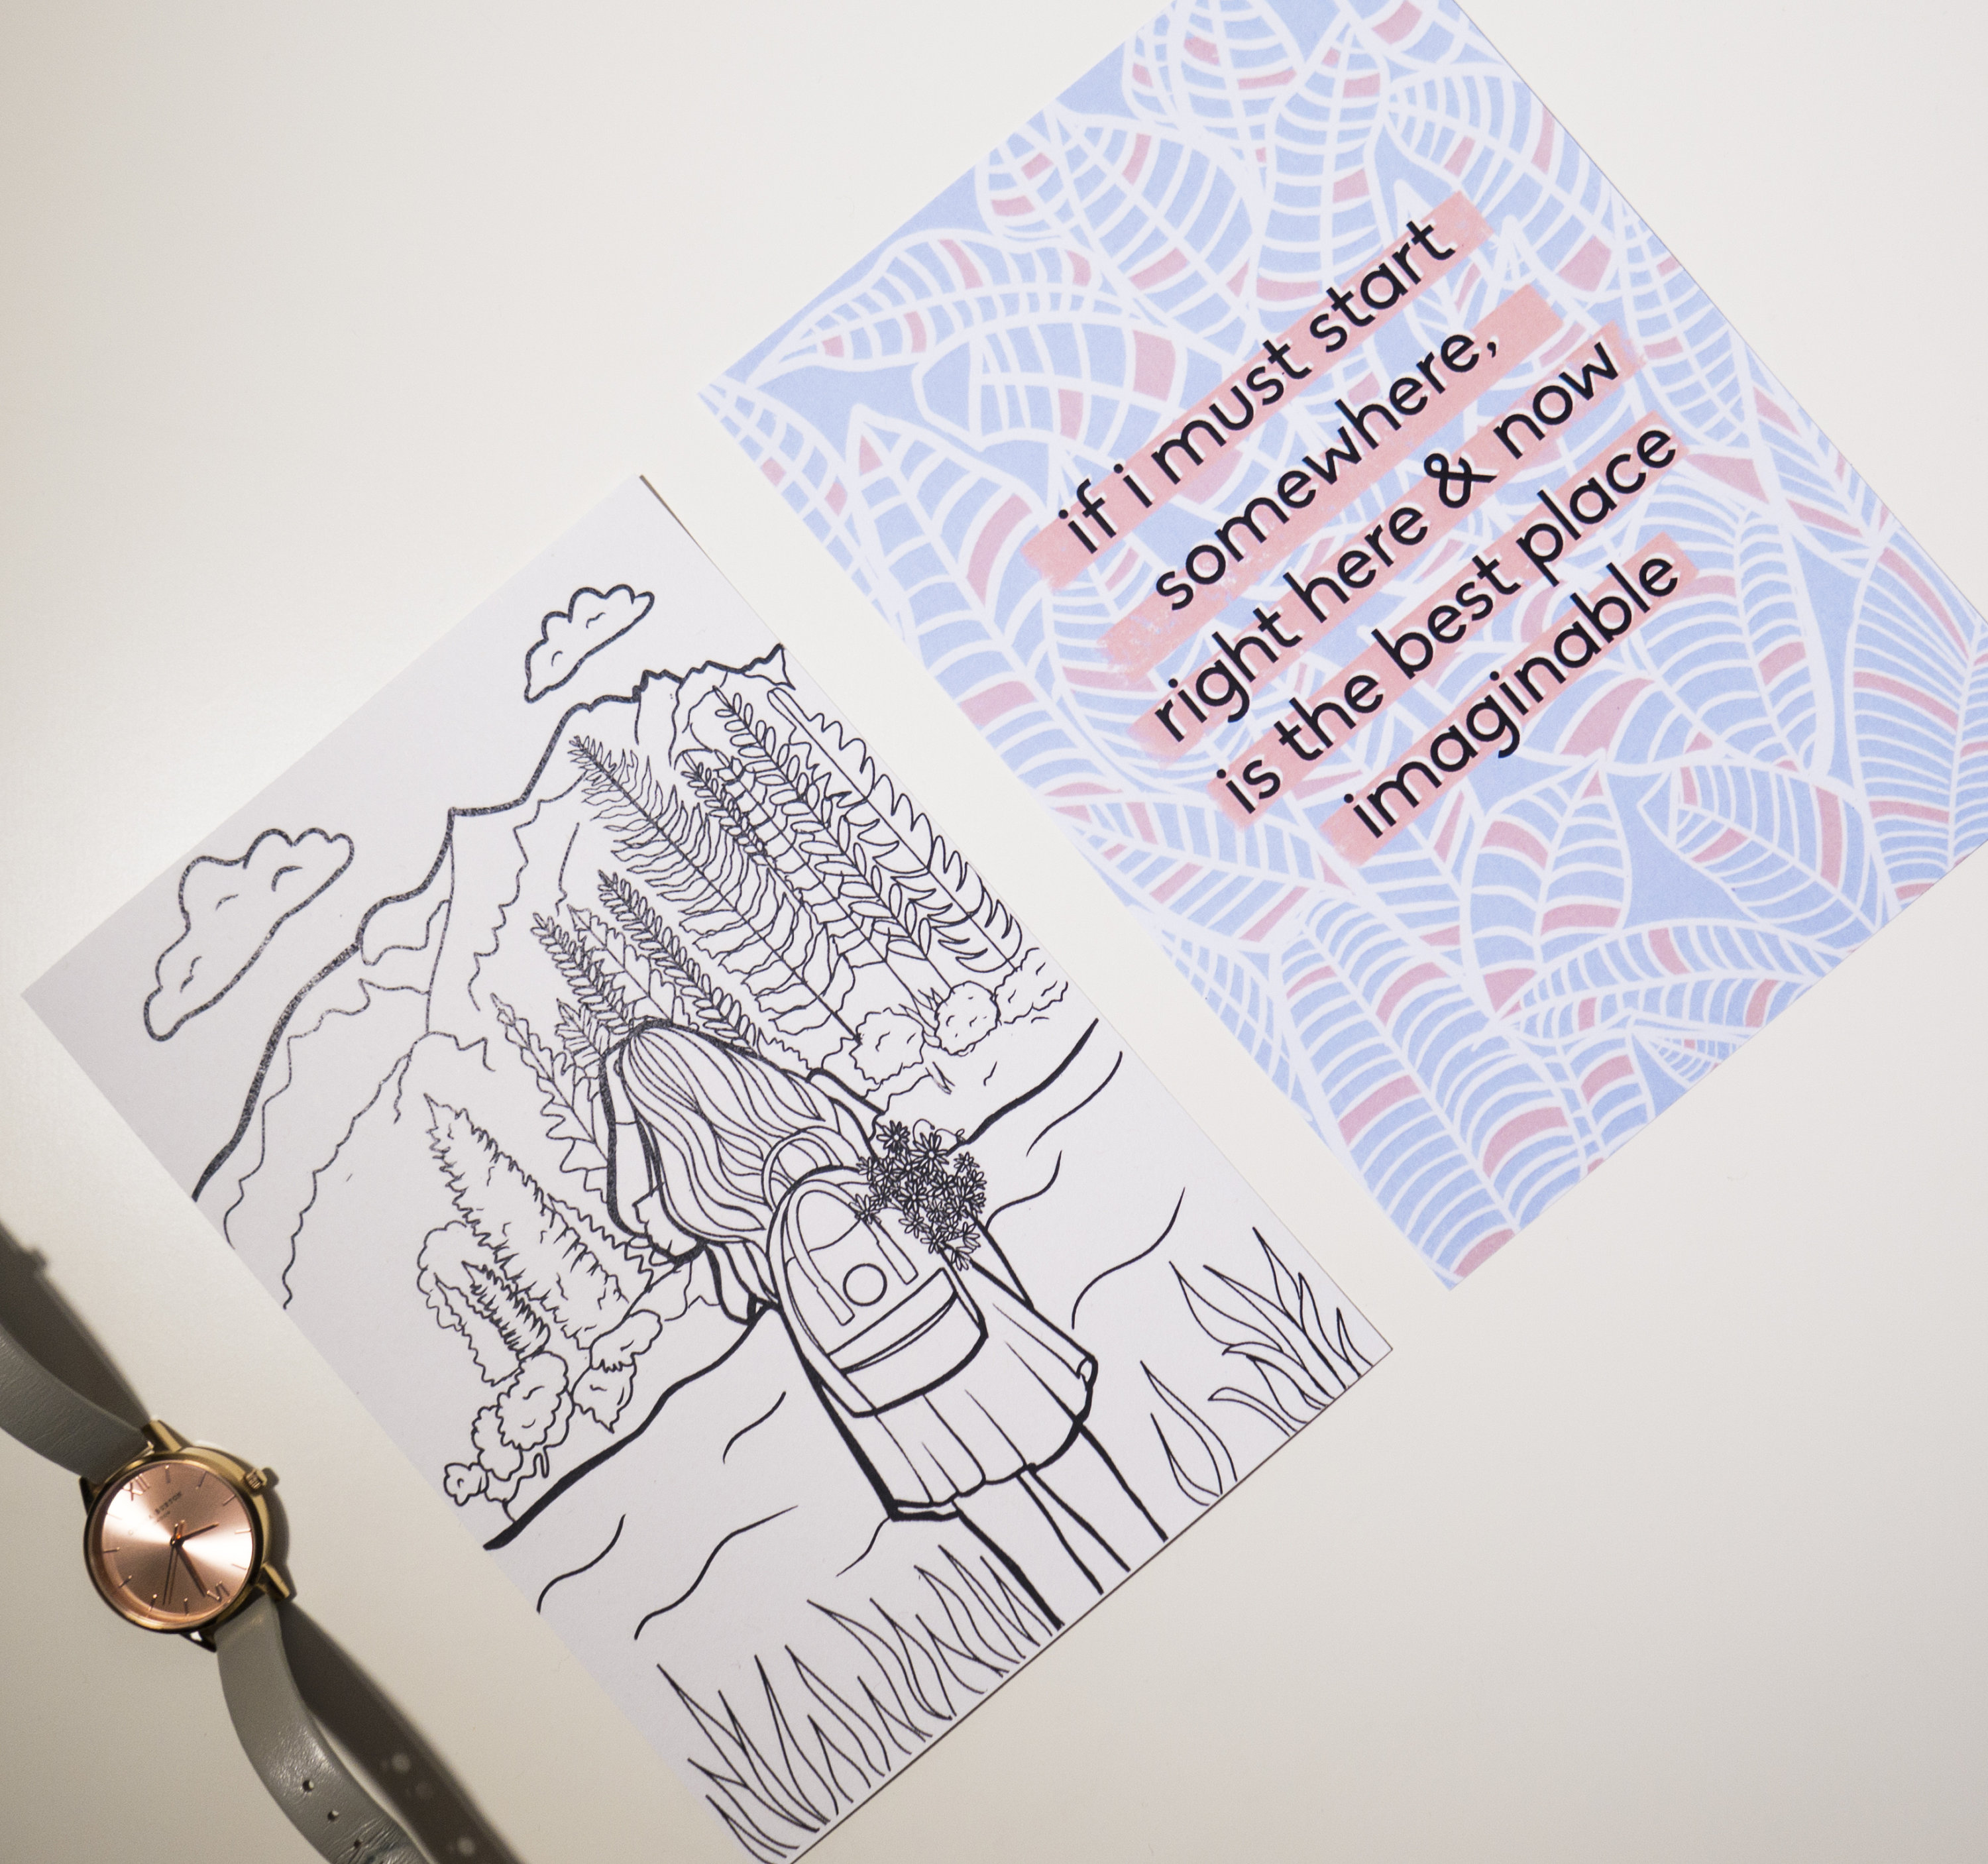 if i must start
somewhere,
right here & now
is the best place
imaginable
XII
VI